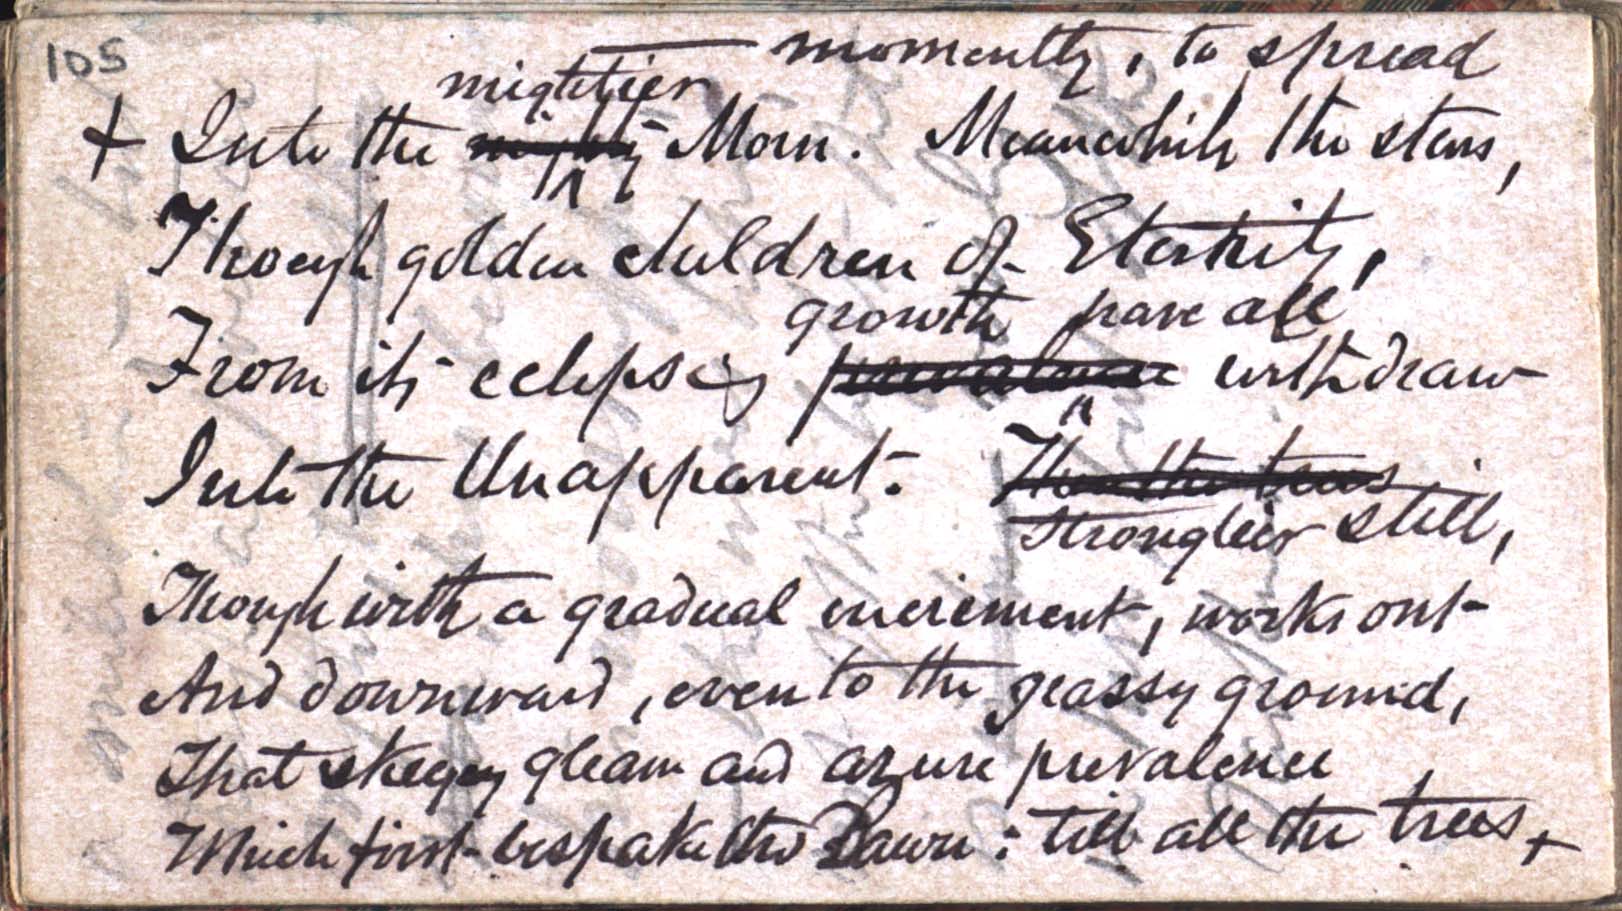 105
—— momently, to spread
mightier
+ Into the mighty Morn. Meanwhile the stars,
Though golden children of Eternity,
growth pare all
From its eclipsing prevalence withdraw
Into the Unapparent. Then the trees
stronglier still,
Though with a gradual increment, works out
And downward, even to the grassy ground,
That skyey gleam and azure prevalence
Which first bespake the Dawn: till all the trees, +